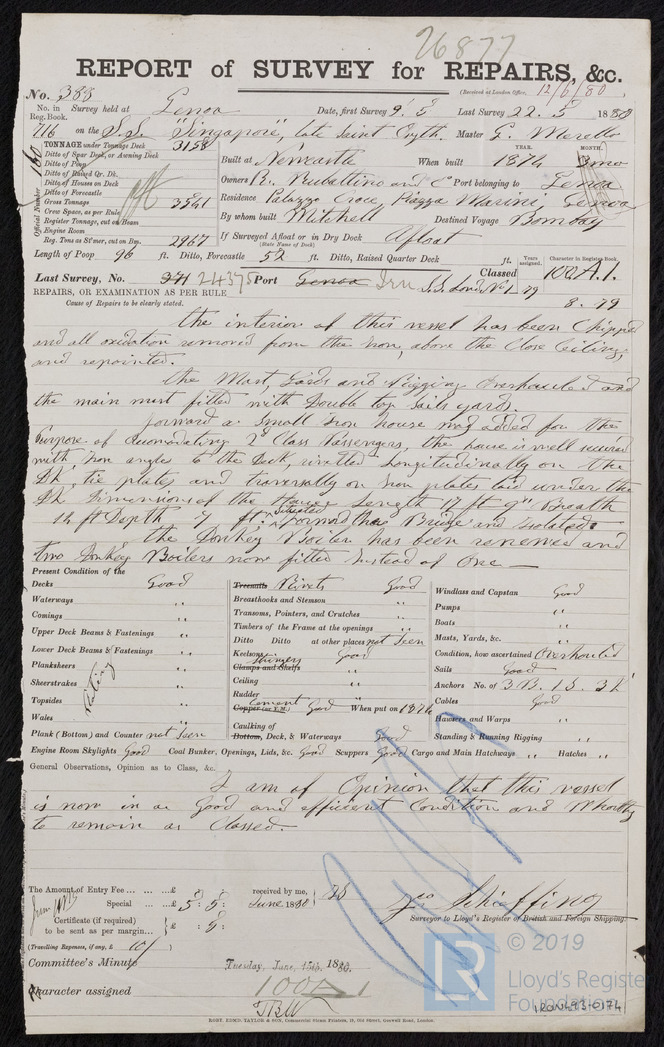 26877
REPORT of SURVEY for REPAIRS, &c.
(Received at London Office, 12/6/80
No. 383
No. in Reg. Book. Survey held at Genoa Date, first Survey 9. 3 Last Survey 22. 5 1880
716 on the S.S. "Singapore", late Saint Master G. Morello
TONNAGE under Tonnage Deck 3158
Ditto of Spar Deck, or Awning Deck
Ditto of Poop
Ditto of Raised Qr. Dk.
Ditto of Houses on Deck
Ditto of Forecastle
Gross Tonnage
Crew Space, as per Rule
Register Tonnage, cut on Beam
Engine Room
Reg. Tons as St'mer, cut on Bm. 2967
Official Number
Built at Newcastle When built YEAR. 1874 MONTH.
Owners R. Rubattino and C Port belonging to Genoa
Residence Palazzo Croce Piazza Marini, Genoa
By whom built Mitchell Destined Voyage Bombay
If Surveyed Afloat or in Dry Dock Afloat
(State Name of Dock)
Length of Poop 96 ft. Ditto, Forecastle 52 ft. Ditto, Raised Quarter Deck ft.
Years assigned. Character in Register Book
Last Survey, No. 24375 Port Genoa Classed 100 A.1.
8. 79
REPAIRS, OR EXAMINATION AS PER RULE
Cause of Repairs to be clearly stated.
the interior of this vessel has been Chipped
and all oxidation removed from the Iron, above the Close Ceiling,
and repainted.
the Mast, Yards and Rigging Overhauled and
the main mast fitted with Double top sails yards.
forward a small Iron house added for the
purpose of 2d Class Passengers, the house is well secured
with Iron angles to the Deck, rivetted Longitudinally on the
Dk. tie plates and on Iron plates laid under the
Dk Dimensions of the House, Length 17 ft 9" Breath
12 ft Depth 7 ft. Situated Forward the Bridge and isolated.
the Donkey Boiler has been renewed and
two Donkey Boilers now fitted Instead of One
Present Condition of the
Decks Good
Waterways "
Comings "
Upper Deck Beams & Fastenings "
Lower Deck Beams & Fastenings "
Planksheers "
Sheerstrakes "
Topsides "
Wales "
Plating
Plank (Bottom) and Counter not Seen
Treenails Rivets Good
Breasthooks and Stemson "
Transoms, Pointers, and Crutches "
Timbers of the Frame at the openings "
Ditto Ditto at other places not Seen
Keelsons Good
Clamps and Shelfs Stringers "
Ceiling "
Rudder "
Copper (or Y.M.) Cement Good When put on
Caulking of
Bottom, Deck, & Waterways Good
Windlass and Capstan Good
Pumps "
Boats "
Masts, Yards, &c. "
Condition, how ascertained Overhauled
Sails Good
Anchors No. of 3.B. 1 S. 2 K
Cables Good
Hawsers and Warps "
Standing & Running Rigging "
Engine Room Skylights Good Coal Bunker, Openings, Lids, &c. Good Scuppers Good Cargo and Main Hatchways " Hatches "
General Observations, Opinion as to Class, &c.
I am of Opinion that this vessel
is now in a Good and efficient Condition and Wharthy
to remain as Classed.
The Amount of Entry Fee ... ... ...£ : : received by me,
Special ... ...£ 5 : 5 : June 1880
Certificate (if required)
to be sent as per margin... £ : 5 :
(Travelling Expenses, if any, £ 10/ )
Surveyor to Lloyd's Register of British and Foreign Shipping.
Committee's Minute Tuesday, June, 15th, 1880.
Character assigned 100 A 1
ROBT. EDMD. TAYLOR & SON, Commercial Steam Printers, 19, Old Street, Goswell Road, London.
LR
© 2019
Lloyd's Register
Foundation
IRON493-0174